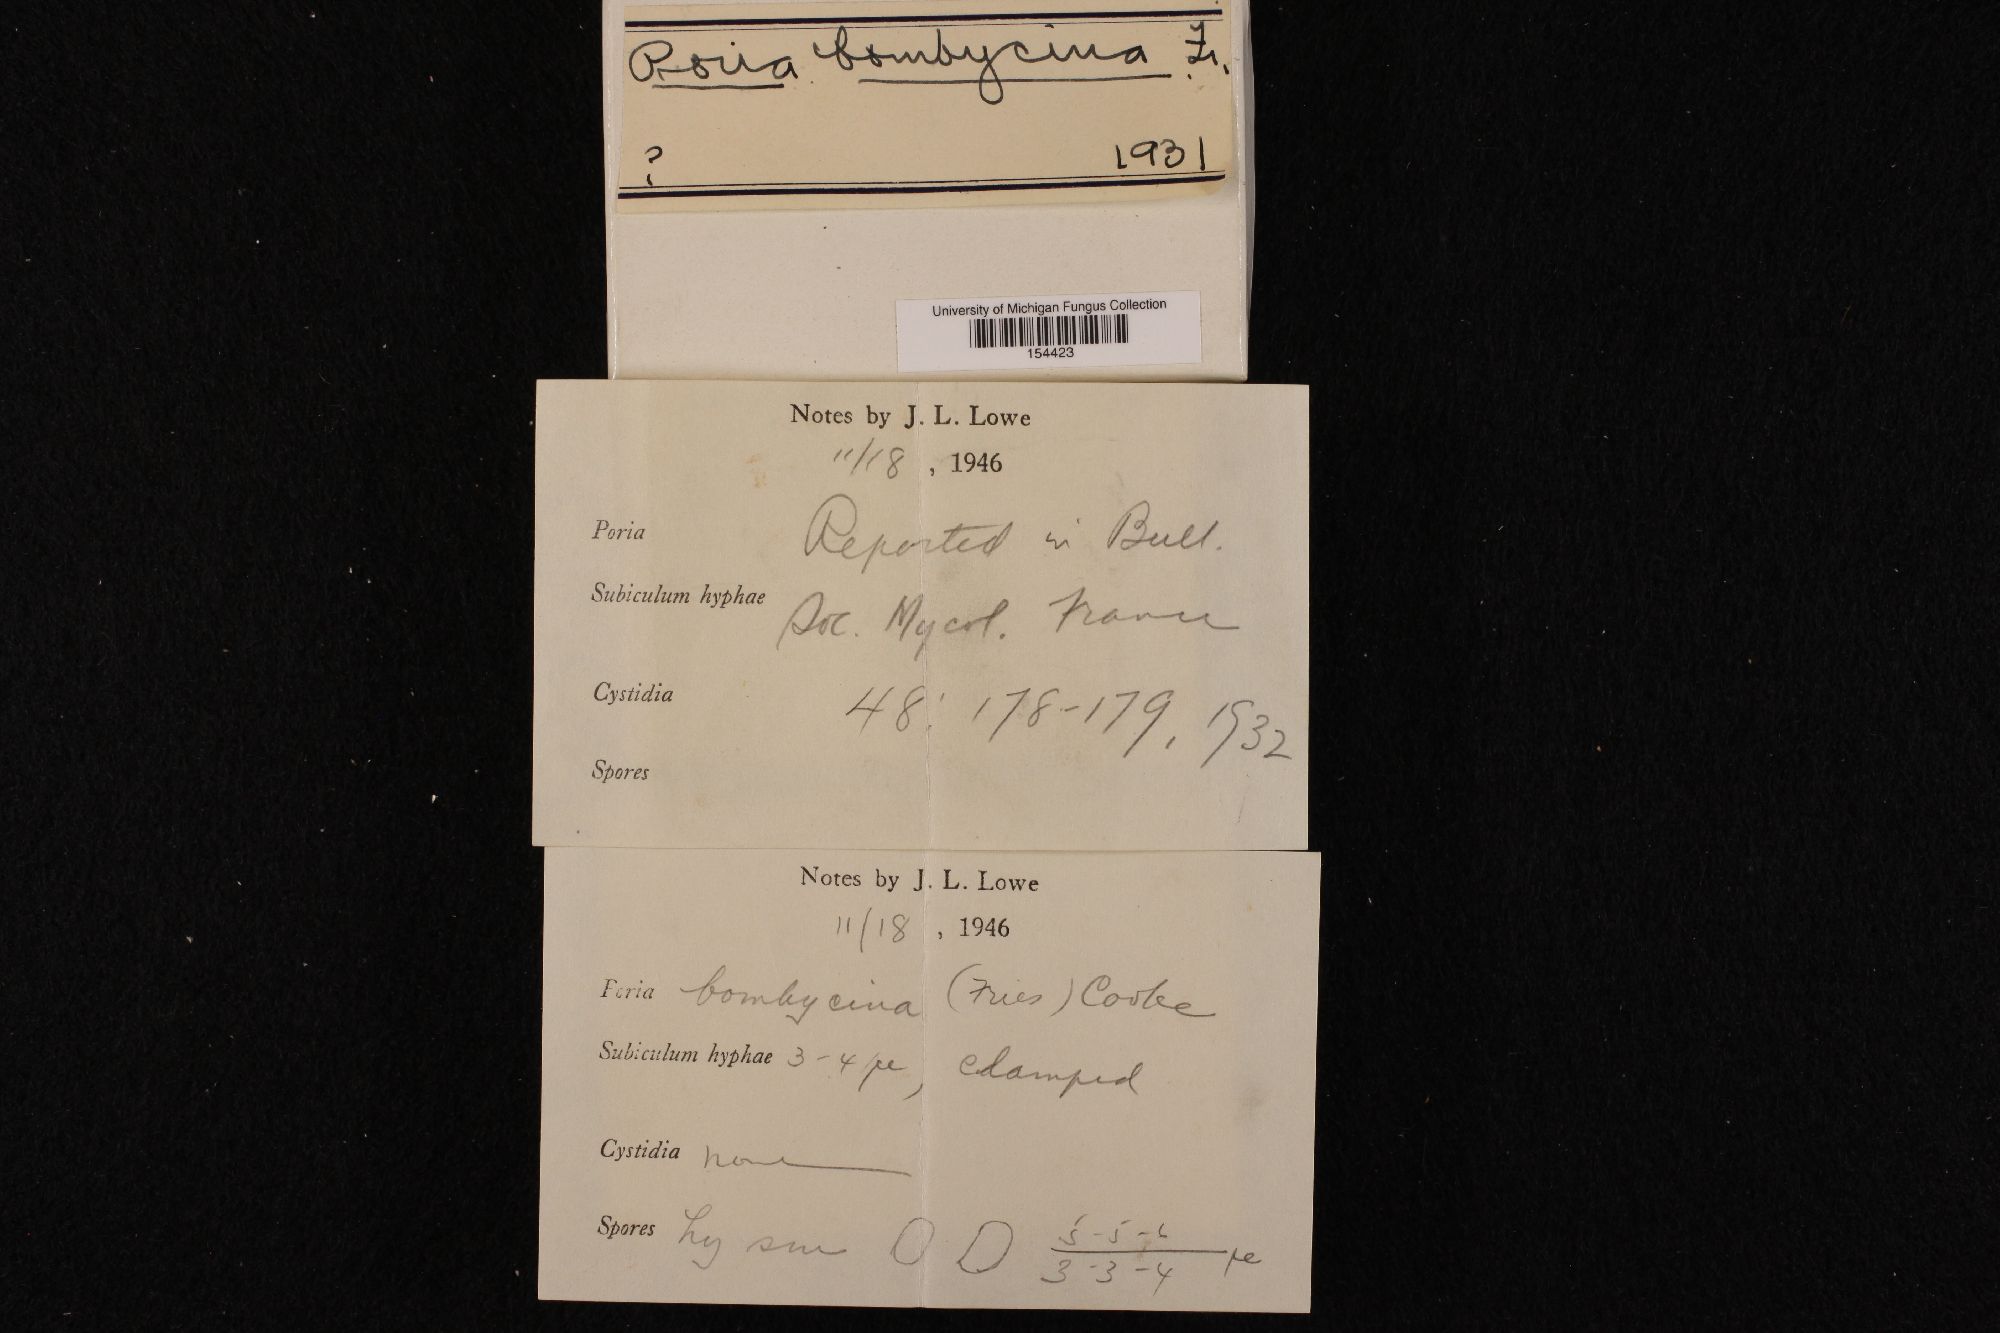 Poria bombycina Fr.
? 1931
University of Michigan Fungus Collection
154423
Notes by J. L. Lowe
11/18, 1946
Poria Reported in Bull.
Subiculum hyphae Soc. Mycol. France
Cystidia 48: 178-179, 1932
Spores
Notes by J. L. Lowe
11/18, 1946
Poria bombycina (Fries) Cooke
Subiculum hyphae 3-4 μ, clamped
Cystidia none
Spores hy sm 5-5-6
3-3-4 μ